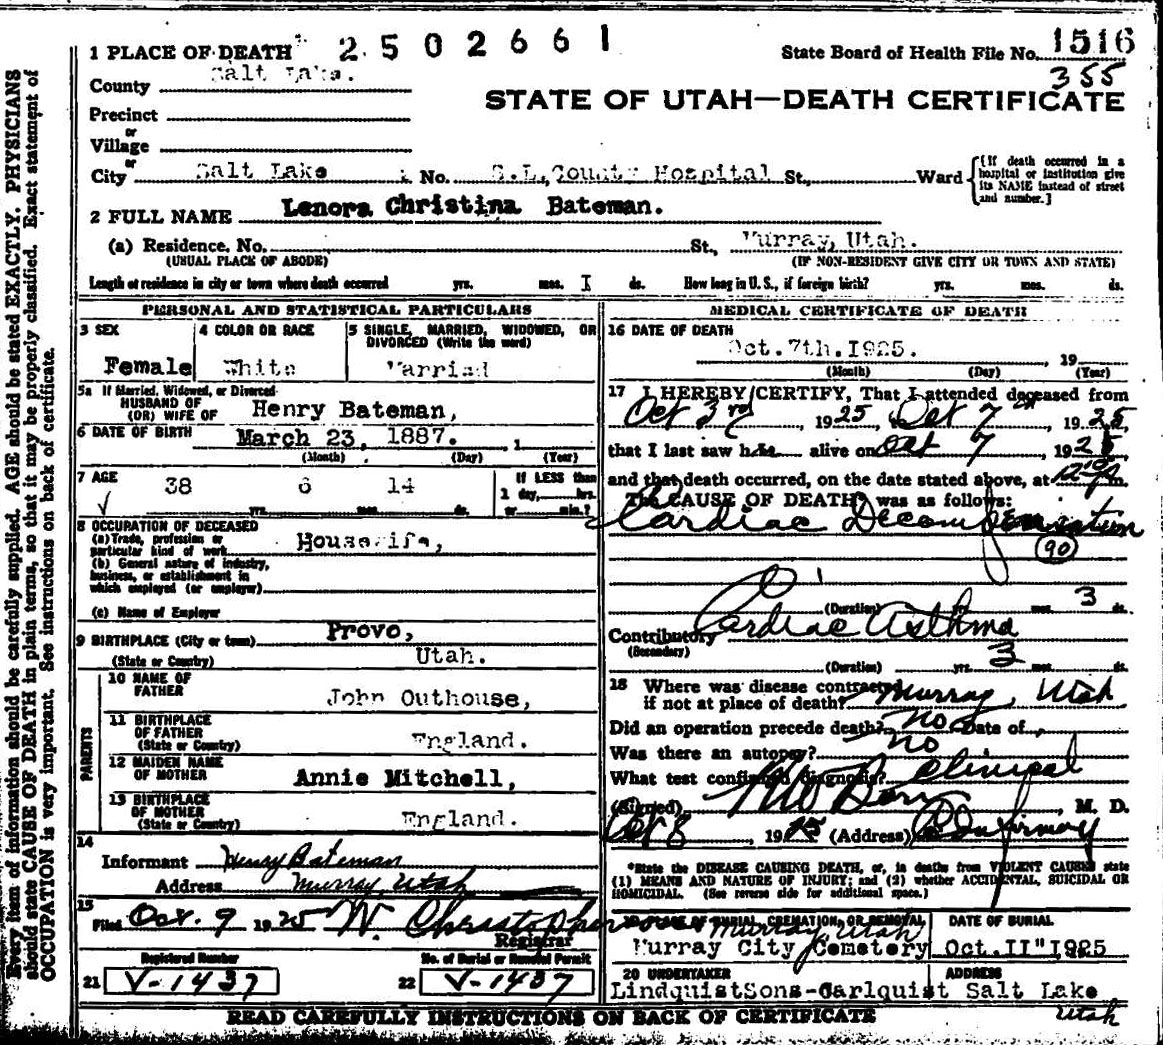 1 PLACE OF DEATH 2502661 State Board of Health File No. 1516
355
County Salt Lake.
STATE OF UTAH—DEATH CERTIFICATE
Precinct
or
Village
or
City Salt Lake No. S.L. County Hospital St., Ward
{[If death occurred in a hospital or institution give its NAME instead of street and number.]
2 FULL NAME Lenora Christina Bateman.
(a) Residence. No. St., Murray, Utah.
(USUAL PLACE OF ABODE) (IF NON-RESIDENT GIVE CITY OR TOWN AND STATE)
Length of residence in city or town where death occurred yrs. mos. I ds. How long in U. S., if foreign birth? yrs. mos. ds.
PERSONAL AND STATISTICAL PARTICULARS
3 SEX 4 COLOR OR RACE 5 SINGLE, MARRIED, WIDOWED, OR DIVORCED (Write the word)
Female White Married
5a If Married, Widowed, or Divorced
HUSBAND OF
(OR) WIFE OF Henry Bateman,
6 DATE OF BIRTH March 23, 1887. , 1
(Month) (Day) (Year)
7 AGE 38 6 14
yrs. mos. ds.
If LESS than
1 day, hrs.
or min.?
8 OCCUPATION OF DECEASED
(a) Trade, profession or
particular kind of work Housewife,
(b) General nature of industry,
business, or establishment in
which employed (or employer)
(c) Name of Employer
9 BIRTHPLACE (City or town) Provo,
(State or Country) Utah.
PARENTS
10 NAME OF
FATHER John Outhouse,
11 BIRTHPLACE
OF FATHER
(State or Country) England.
12 MAIDEN NAME
OF MOTHER Annie Mitchell,
13 BIRTHPLACE
OF MOTHER
(State or Country) England.
14
Informant Henry Bateman
Address Murray, Utah
15
Filed Oct. 9 1925 W. Christopherson
Registrar
Registered Number No. of Burial or Removal Permit
21 V-1437 22 V-1437
MEDICAL CERTIFICATE OF DEATH
16 DATE OF DEATH
Oct. 7th. I925. , 19
(Month) (Day) (Year)
17 I HEREBY CERTIFY, That I attended deceased from
Oct 3rd 1925, Oct 7th, 1925,
that I last saw her alive on Oct 7, 1925
and that death occurred, on the date stated above, at m.
The CAUSE OF DEATH* was as follows:
Cardiac Decompensation
(90)
(Duration) yrs. mos. 3 ds.
Contributory Cardiac Asthma
(Secondary)
(Duration) yrs. 3 mos. ds.
18 Where was disease contracted
if not at place of death? Murray, Utah
Did an operation precede death? No Date of
Was there an autopsy? No
What test confirmed diagnosis? Clinical
(Signed) , M. D.
Oct 8, 1925 (Address) Co Infirmary
*State the DISEASE CAUSING DEATH, or, in deaths from VIOLENT CAUSES state
(1) MEANS AND NATURE OF INJURY; and (2) whether ACCIDENTAL, SUICIDAL OR
HOMICIDAL. (See reverse side for additional space.)
19 PLACE OF BURIAL, CREMATION, OR REMOVAL DATE OF BURIAL
Murray, Utah
Murray City Cemetery Oct. II" I925
20 UNDERTAKER ADDRESS
LindquistSons-Carlquist Salt Lake
Utah
READ CAREFULLY INSTRUCTIONS ON BACK OF CERTIFICATE
Every item of information should be carefully supplied. AGE should be stated EXACTLY. PHYSICIANS
should state CAUSE OF DEATH in plain terms, so that it may be properly classified. Exact statement of
OCCUPATION is very important. See instructions on back of certificate.